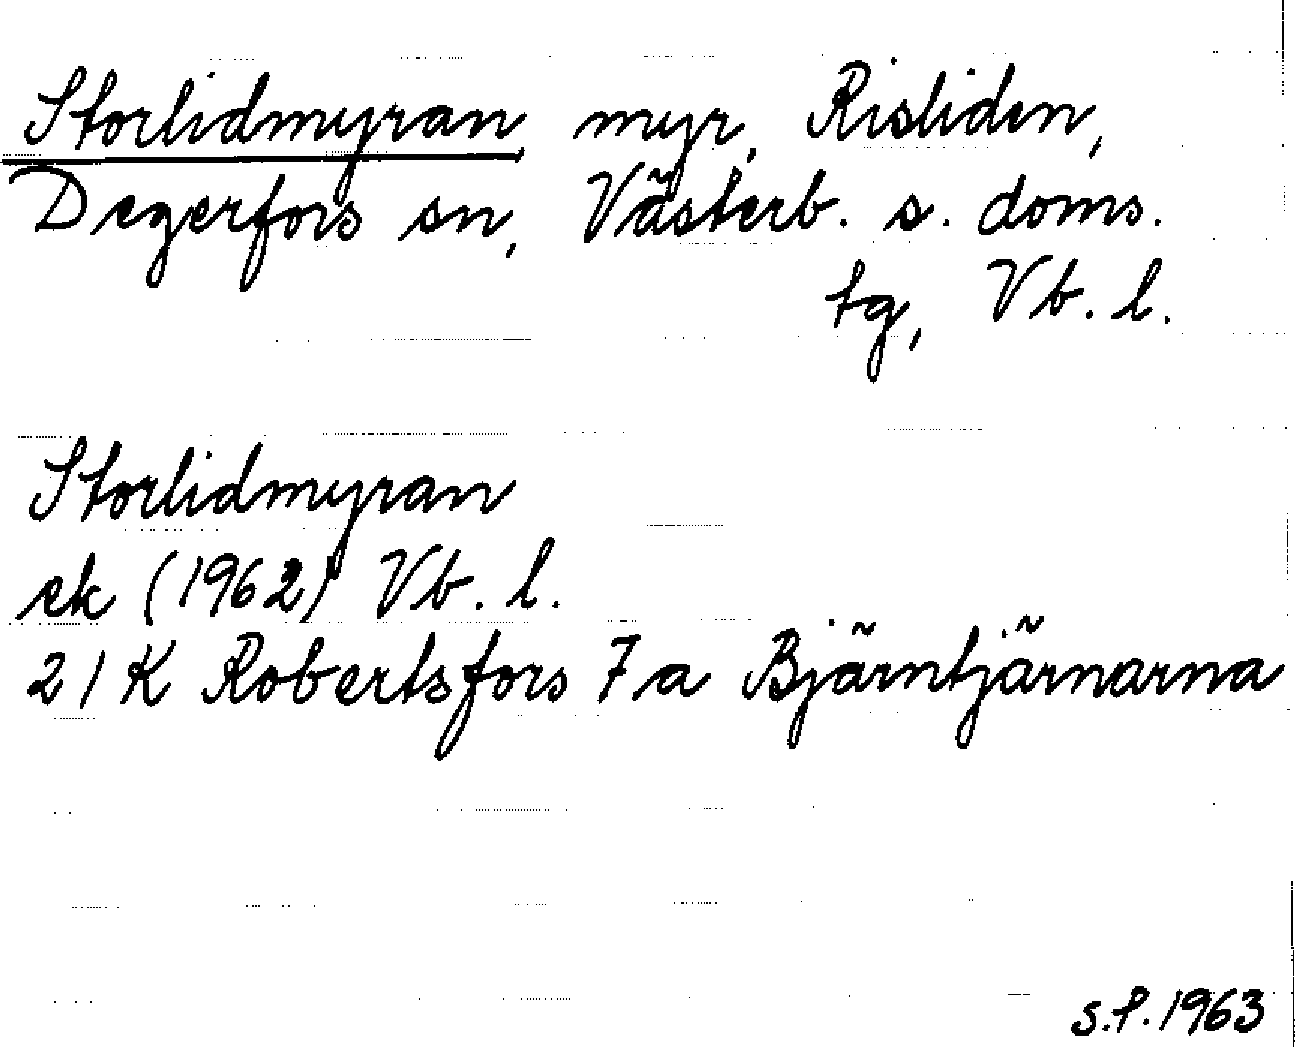 Storlidmyran, myr, Risliden,
Degerfors sn, Västerb. s. doms.
tg, Vb. l.
Storlidmyran
ek (1962) Vb. l.
21K Robertsfors 7a Bjärntjärnarna
S.P. 1963